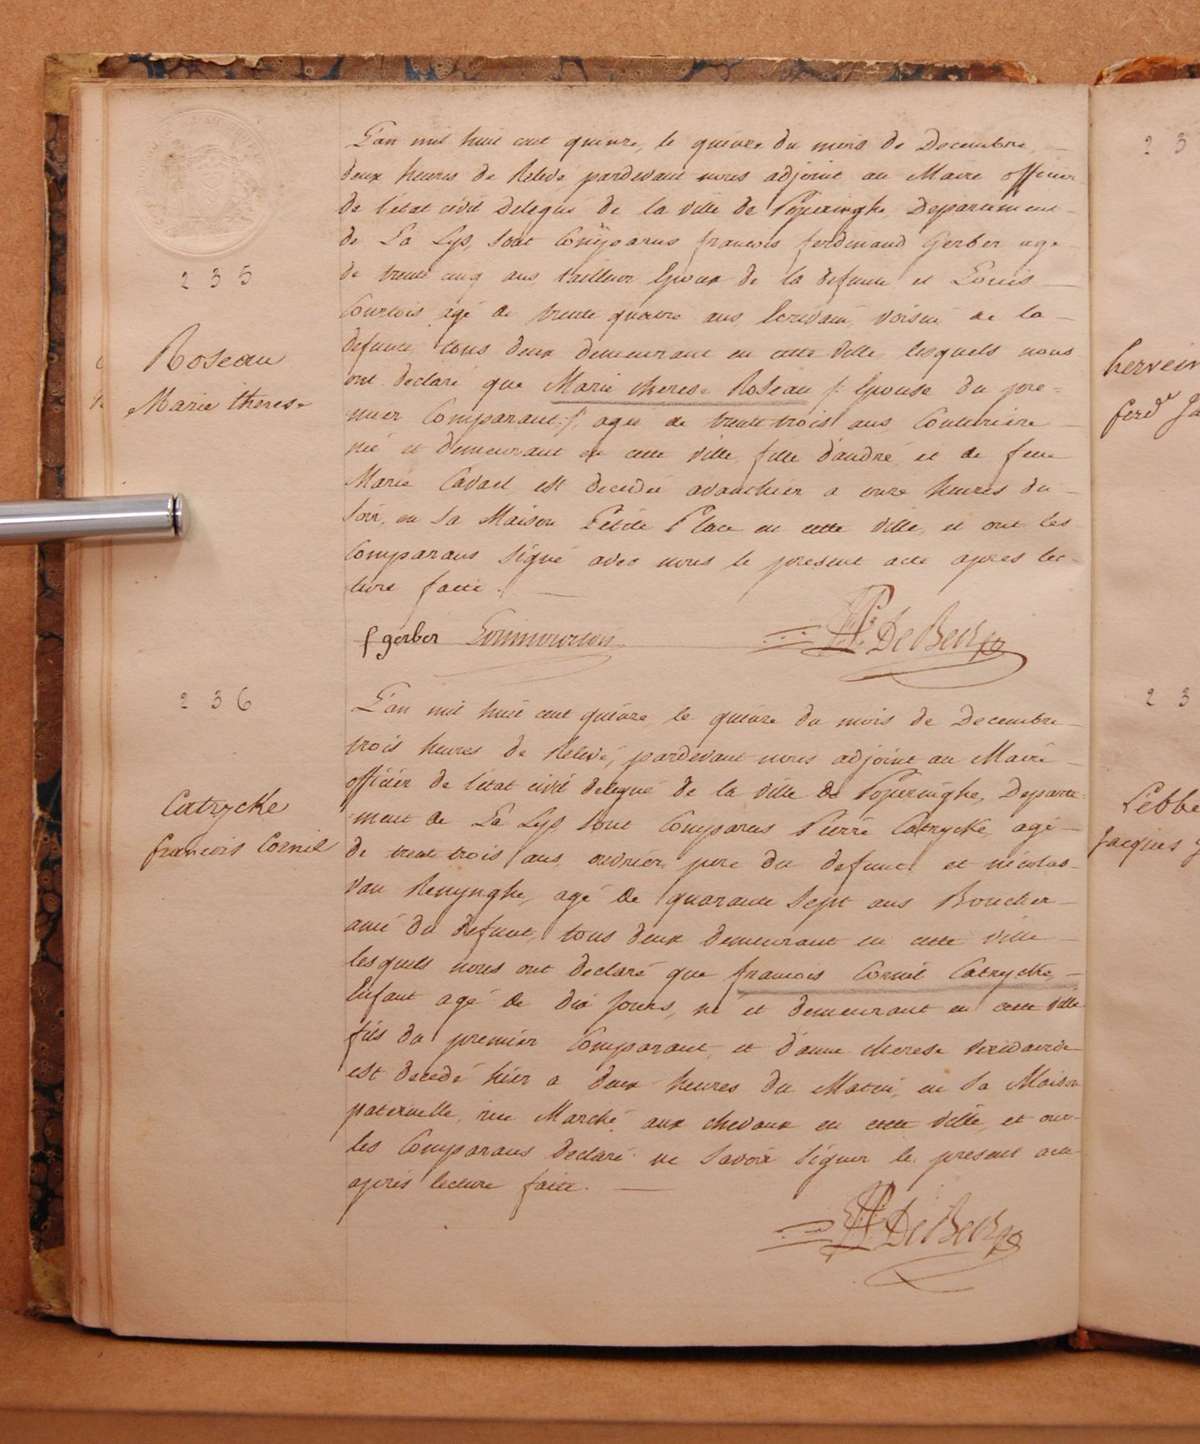 235
Roseau
Marie therese
L'an mil huit cent quinze, le quinze du mois de Decembre,
deux heures de Relevé pardevant nous adjoint au Maire officier
de l'etat civil delegué de la ville de Poperinghe, Departement
de La Lys, sont Comparus francois ferdinand Gerber agé
de trente cinq ans, tailleur Epoux de la defunte et Louis
Courtois agé de trente quatre ans, Ecrivain, voisin de la
defunte, tous deux demeurant en cette ville, lesquels nous
ont declaré que Marie therese Roseau /: Epouse du pre-
mier Comparant :/ agée de trente trois ans Couturiere
née et demeurant en cette ville, fille d'andré et de feue
Marie Cadael est decedée avanthier a onze heures du
soir, en sa Maison Petite Place en cette ville, et ont les
Comparans signé avec nous le present acte apres lec-
ture faite.
f gerber De Beck
236
Catrycke
francois Cornil
L'an mil huit cent quinze, le quinze du mois de Decembre
trois heures de Relevé, pardevant nous adjoint au Maire
officier de l'etat civil delegué de la ville de Poperinghe, Departe-
ment de La Lys sont Comparus Pierre Catrycke, agé
de trente trois ans ouvrier, pere du defunct et nicolas
van Renynghe, agé de quarante sept ans Boucher
ami du defunt, tous deux demeurant en cette ville
lesquels nous ont declaré que francois Cornil Catrycke,
Enfant agé de dix jours, né et demeurant en cette ville
fils du premier Comparant, et d'anne therese
est decedé hier a deux heures du Matin, en sa Maison
paternelle, rue Marché aux chevaux en cette ville, et ont
les Comparans declaré ne savoir signer le present acte
après lecture faite.
De Beck
23
fer
23
Jacques